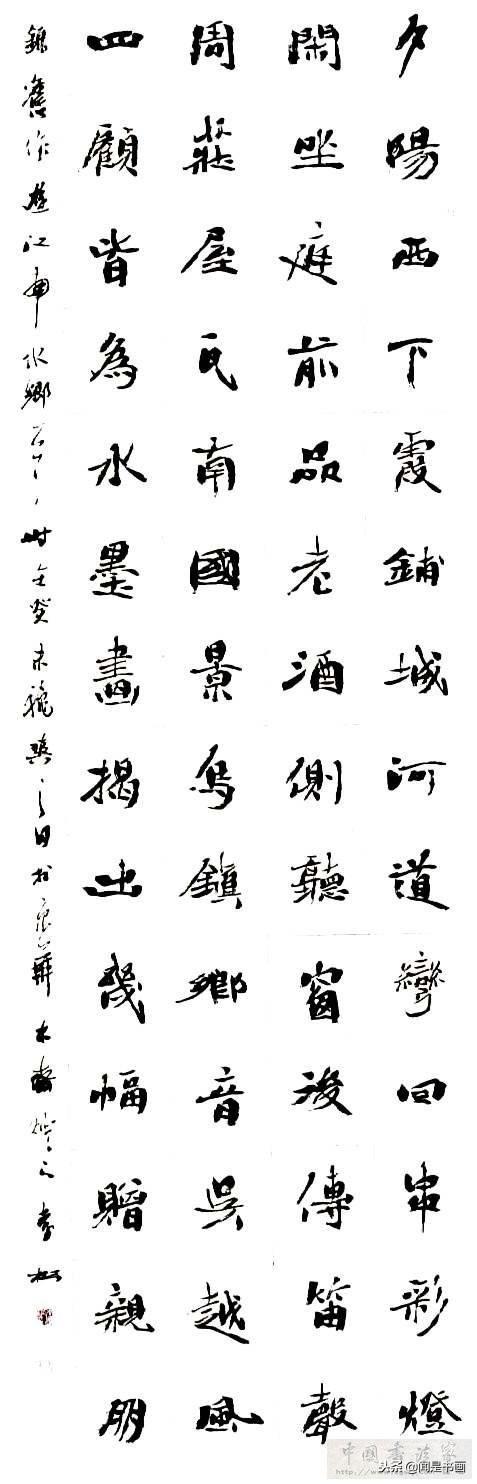 夕陽西下霞鋪城河道彎回串彩燈
閑坐庭前品老酒側聽窗後傳笛聲
周莊屋瓦南國景烏鎮鄉音吳越風
四顧皆為水墨畫揭出幾幅贈親朋
錄舊作遊江南水鄉 時在癸未 之日於 書
中國書法家
http://www.
头条@闻是书画